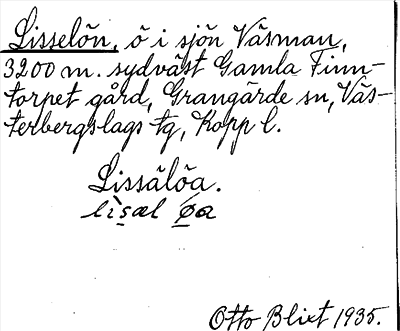 Lisselön, ö i sjön Väsman,
3200 m. sydväst Gamla Finn-
torpet gård, Grangärde sn, Väs-
terbergslags tg, Kopp l.
Lissälöa.
Otto Blixt 1935.